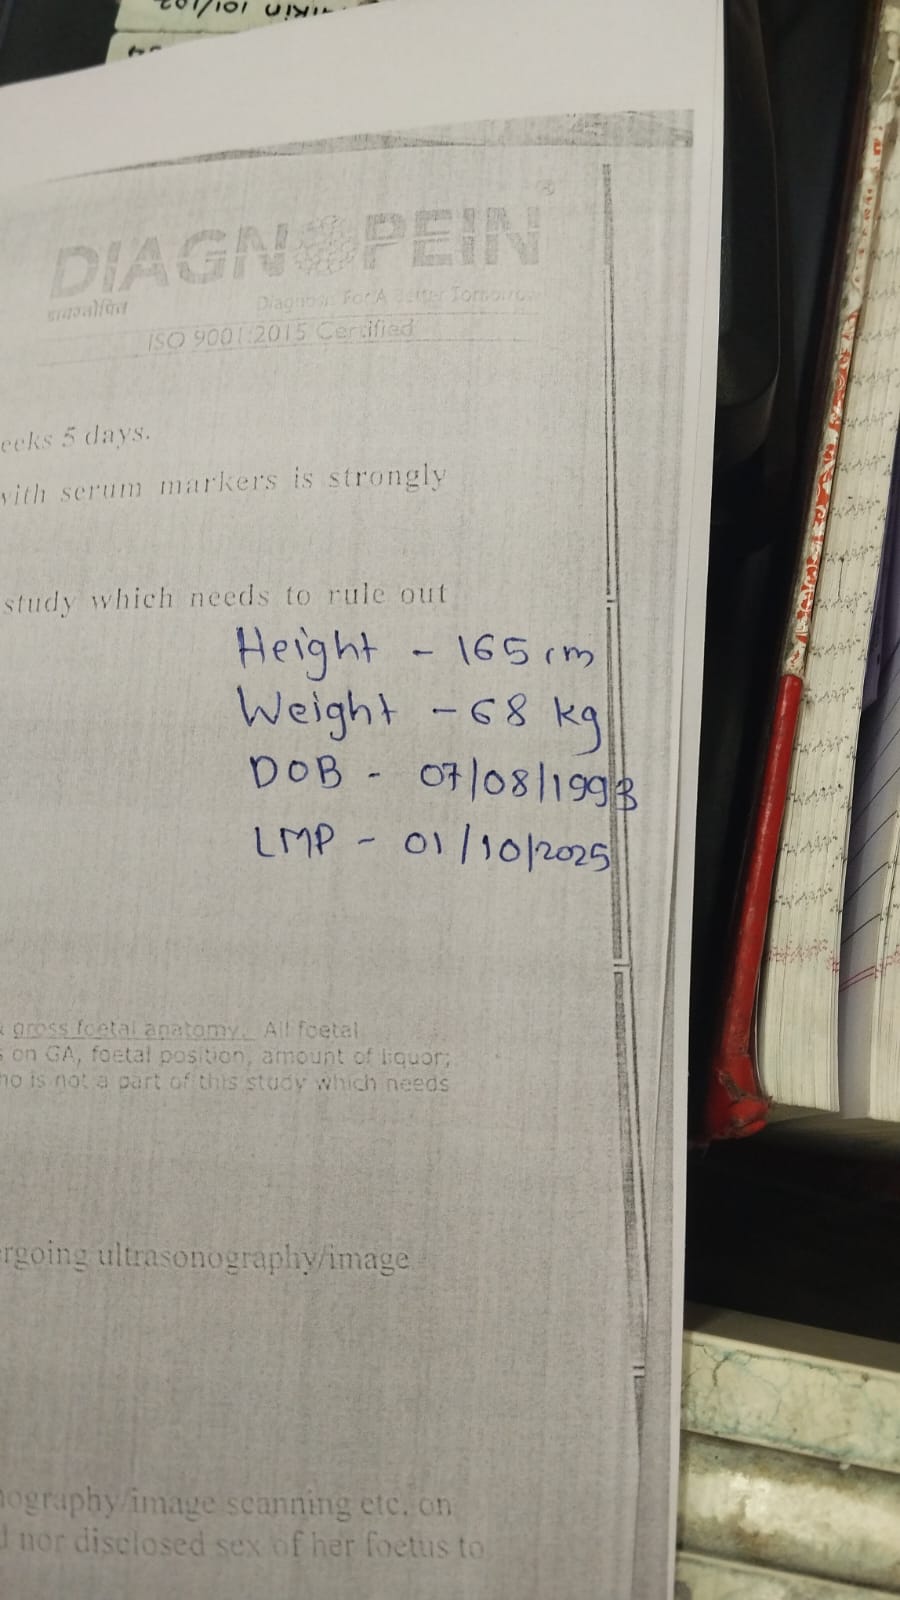 DIAGNOPEIN
डायग्नोपिन
Diagnosis For A Better Tomorrow
ISO 9001:2015 Certified
eeks 5 days.
with serum markers is strongly
study which needs to rule out
Height - 165 cm
Weight - 68 kg
DOB - 07/08/1993
LMP - 01/10/2025
gross foetal anatomy. All foetal
on GA, foetal position, amount of liquor;
ho is not a part of this study which needs
rgoing ultrasonography/image
nography/image scanning etc. on
d nor disclosed sex of her foetus to